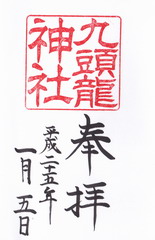 九頭龍
神社
奉拝
平成二十五年
一月五日